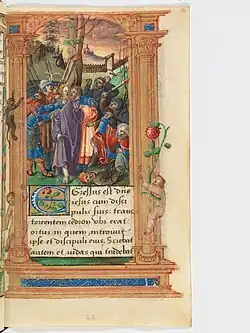 Egressus est dns
iesus cum disci
pulis suis: trans
torrentem cedron vbi erat
ortus in quem introiuit
ipse et discipuli eius. Sciebat
autem et iudas qui tradebat